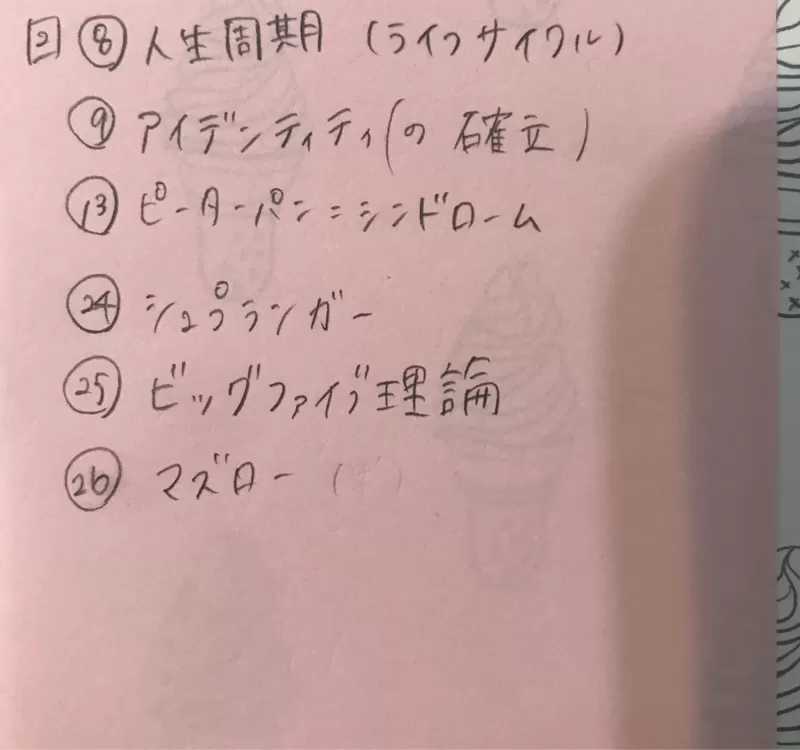 2 ⑧ 人生周期 (ライフサイクル)
⑨ アイデンティティ(の 確立)
⑬ ピーターパン=シンドローム
㉔ シュプランガー
㉕ ビッグファイブ理論
㉖ マズロー